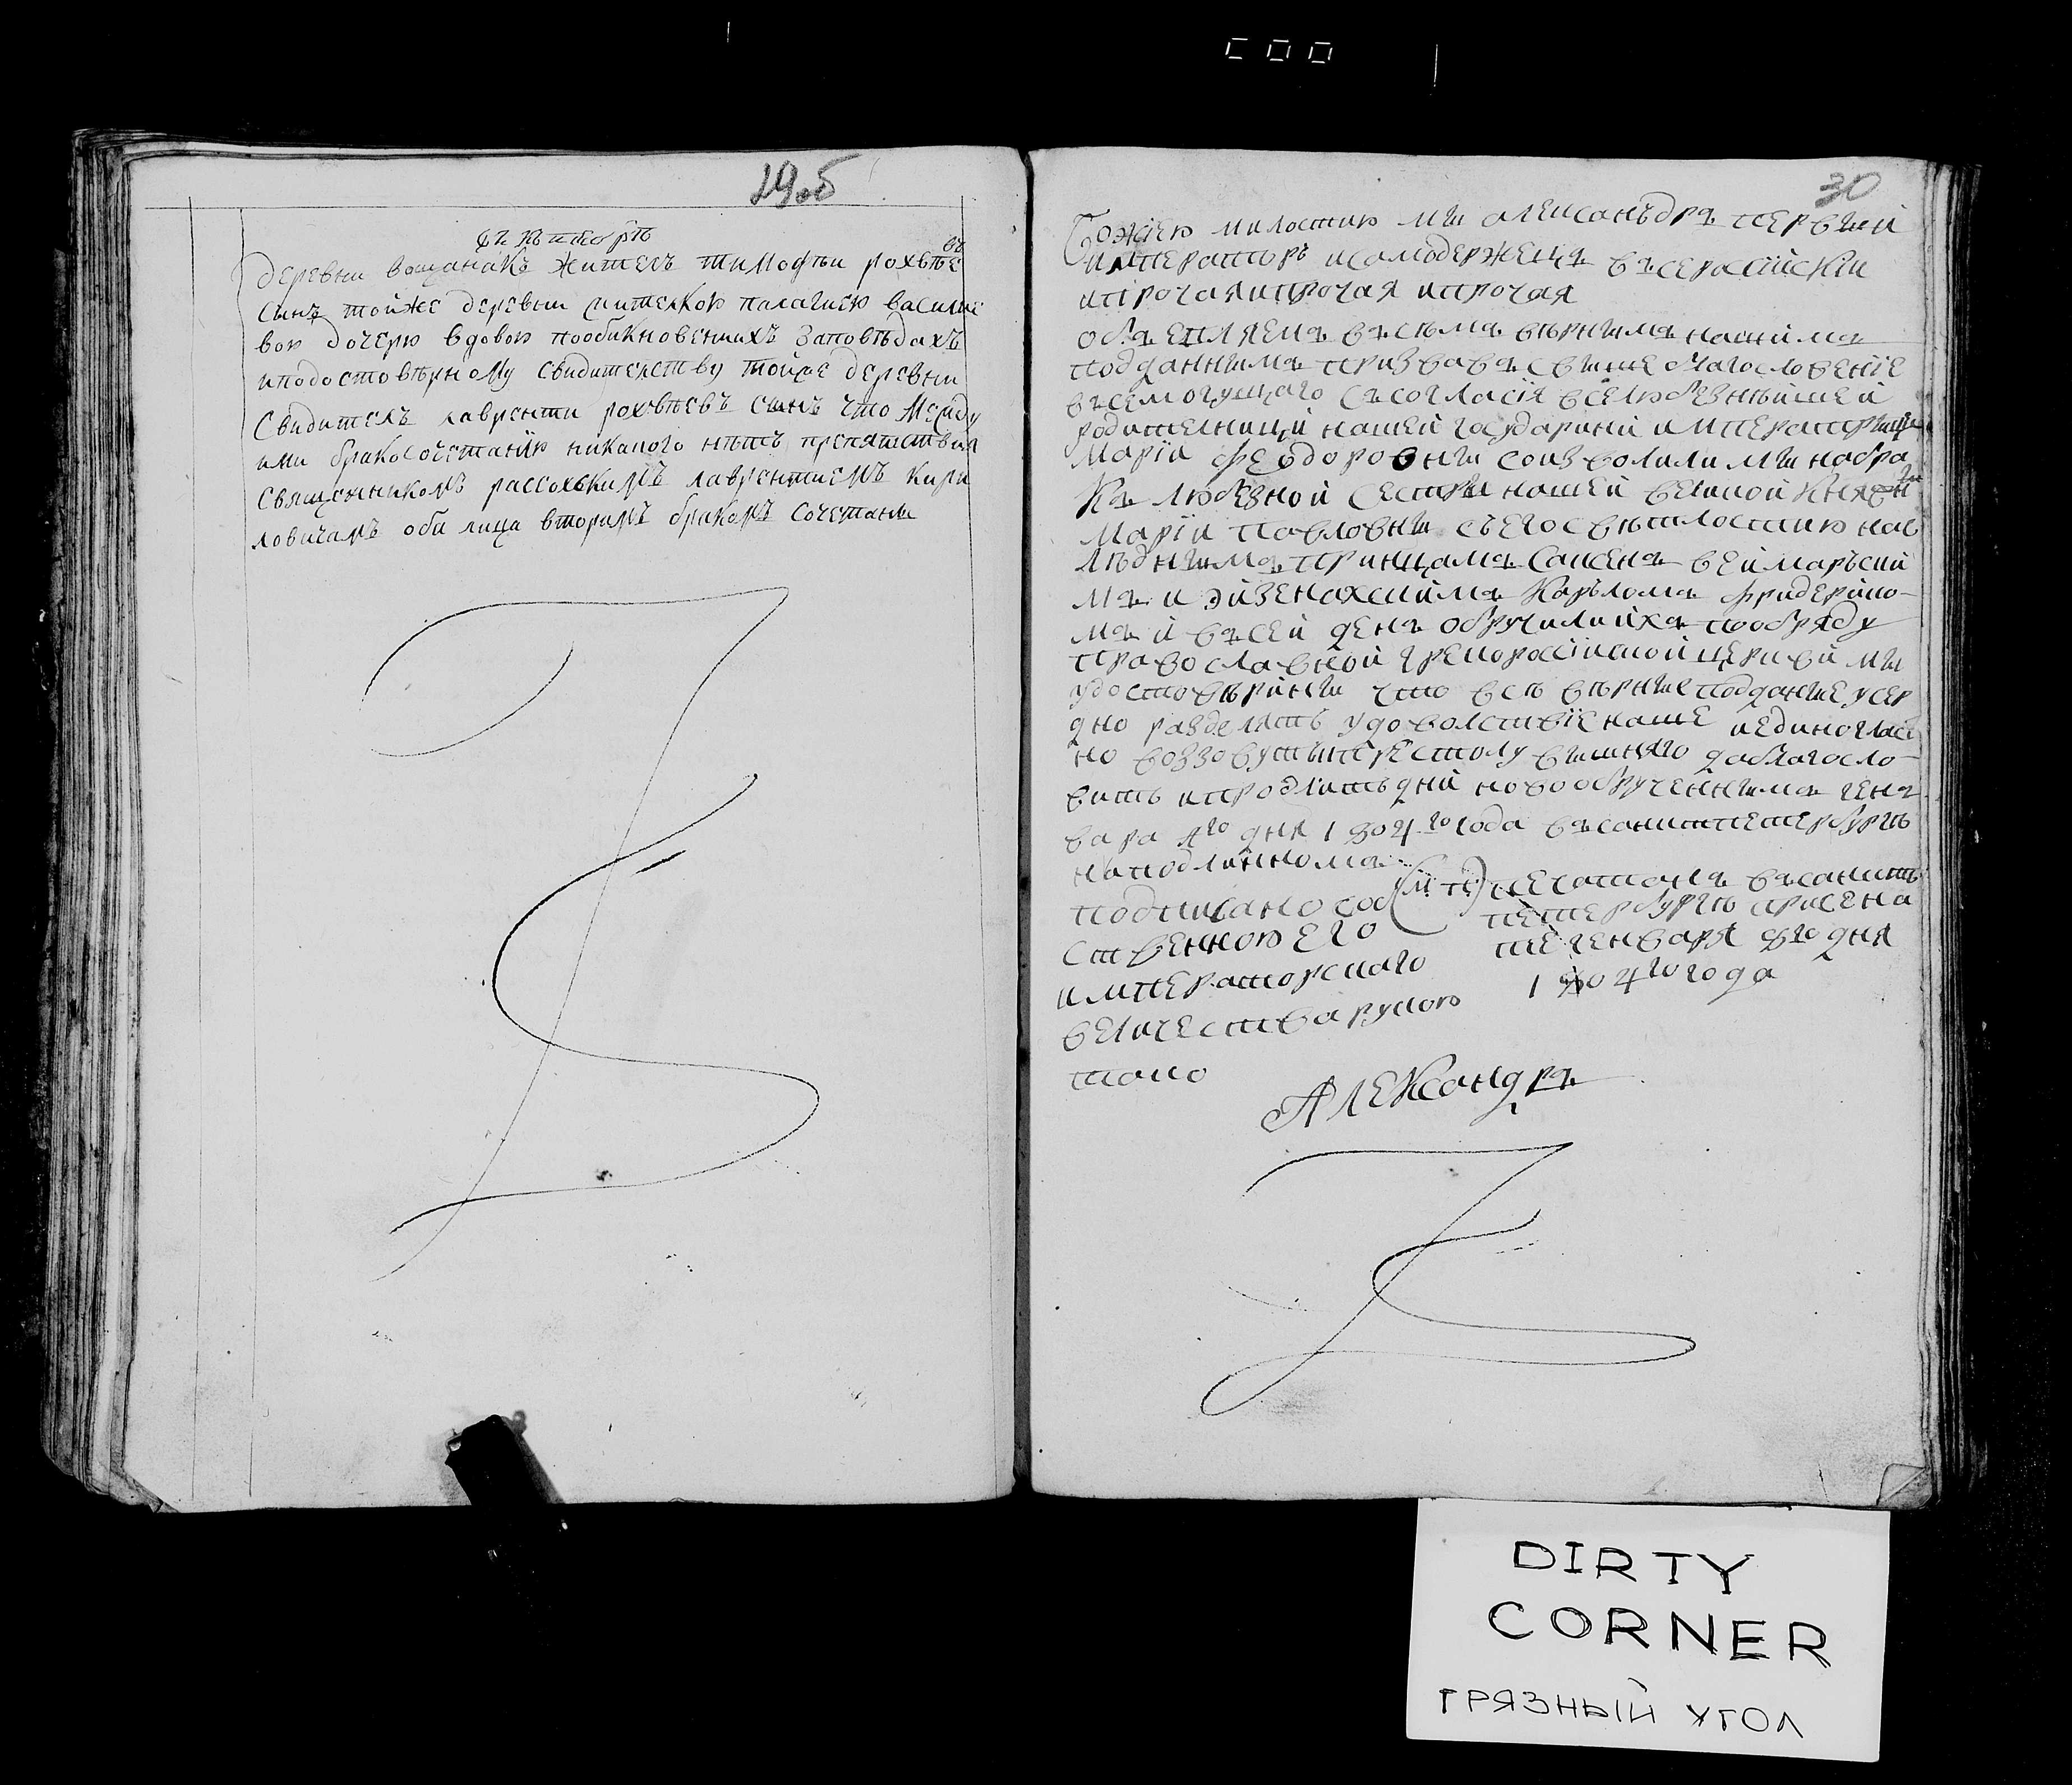 29об
деревни вощанакъ жителъ тимофеи рохвѣе
въ
синъ тойже деревни жителкою палагиею василие
вою дочерю вдовою пообикновеннихъ Заповѣдахъ
иподостовѣрному свидителству тойже деревни
Свидителъ лаврентти рохвѣевъ синъ что Между
ими бракосочетанию никакого нѣтъ препятствия
Священникомъ рассохскимъ лаврентиемъ кири
ловичамъ оби лица вторимъ бракомъ Сочетани
30
Божіею милостию мы алеисанъдръ первый
императоръ исамодержецъ въсерасійскіи
ипрочаяипрочая ипрочая
объевляемъ въсѣмъ вѣрнымъ нашимъ
подданнымъ призвавъ свыше благословеніе
въсемогущаго съсогласія вселюбезнѣйшей
родителницй нашей государинй императрицы
Маріи феодоровны соизволили мы набра
Къ любезной сестры нашей великой Княжн
ы
Маріи павловны съего свѣтлостию нас
лѣднымъ принцамъ Саисенъ веймаръсии
мъ и эйзенахсиймъ Каръломъ фридерико-
мъ й въсей денъ обручилийхъ пообряду
православной грекороссійсиойцеркви мы
удостовѣрйны что всѣ вѣрныеподданые усер
дно разделятъ удоволствіенаше иединоглас
но воззовутъипрестолу вышняго даблагосло-
витъ ипродлитъднй новообрученнымъ ген
вара 1го дня 1804го года въсаниттетербургѣ
наподлинномъ
подписано соб
ственною его
императорсиаго
величестваруиою
таио
(М П)
печатанъ въсанить
петербургѣ присена
те генваря 8го дня
1804го года
Александръ
DIRTY
CORNER
ГРЯЗНЫЙ УГОЛ